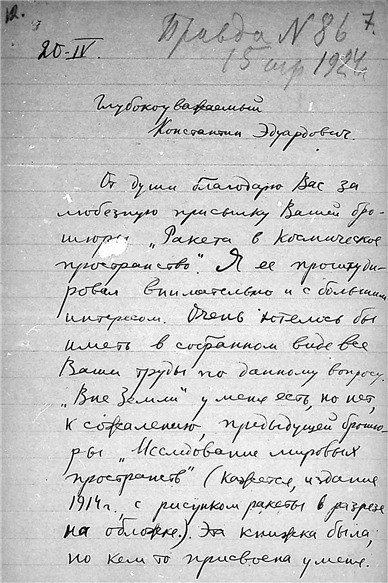 12.
7.
Правда N 86
15 апр 1924г.
20-IV.
Глубокоуважаемый
Константин Эдуардович.
От души благодарю Вас за
любезную присылку Вашей бро-
шюры „Ракета в Космическое
пространство". Я ее проштуди-
ровал внимательно и с большим
интересом. Очень хотелось бы
иметь в собранном виде все
Ваши труды по данному вопросу.
„Вне Земли" у меня есть, но нет,
к сожалению, предыдущей брошю-
ры „Исследование мировых
пространств" (кажется, издание
1914г., с рисунком ракеты в разрезе
на обложке.). Эта книжка была,
но кем то присвоена у меня.